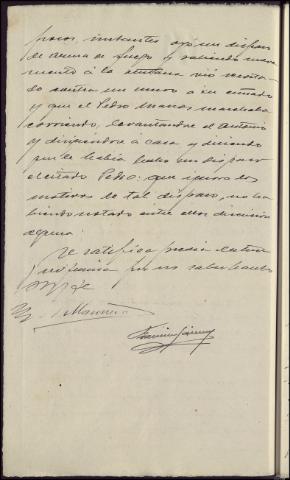 pocos instantes oyó un disparo
de arma de fuego y saliendo nueva
mente á la ventana vió recosta
do contra un muro á su cuñado
y que el Pedro Marcos marchaba
corriendo, levantandose el Antonio
y dirigiendose á casa y diciendo
que le había hecho un disparo
el citado Pedro: que ignora los
motivos de tal disparo, no ha
biendo notado entre ellos discusion
alguna.
Se ratifica previa lectura
y no firma por no saber hacerlo